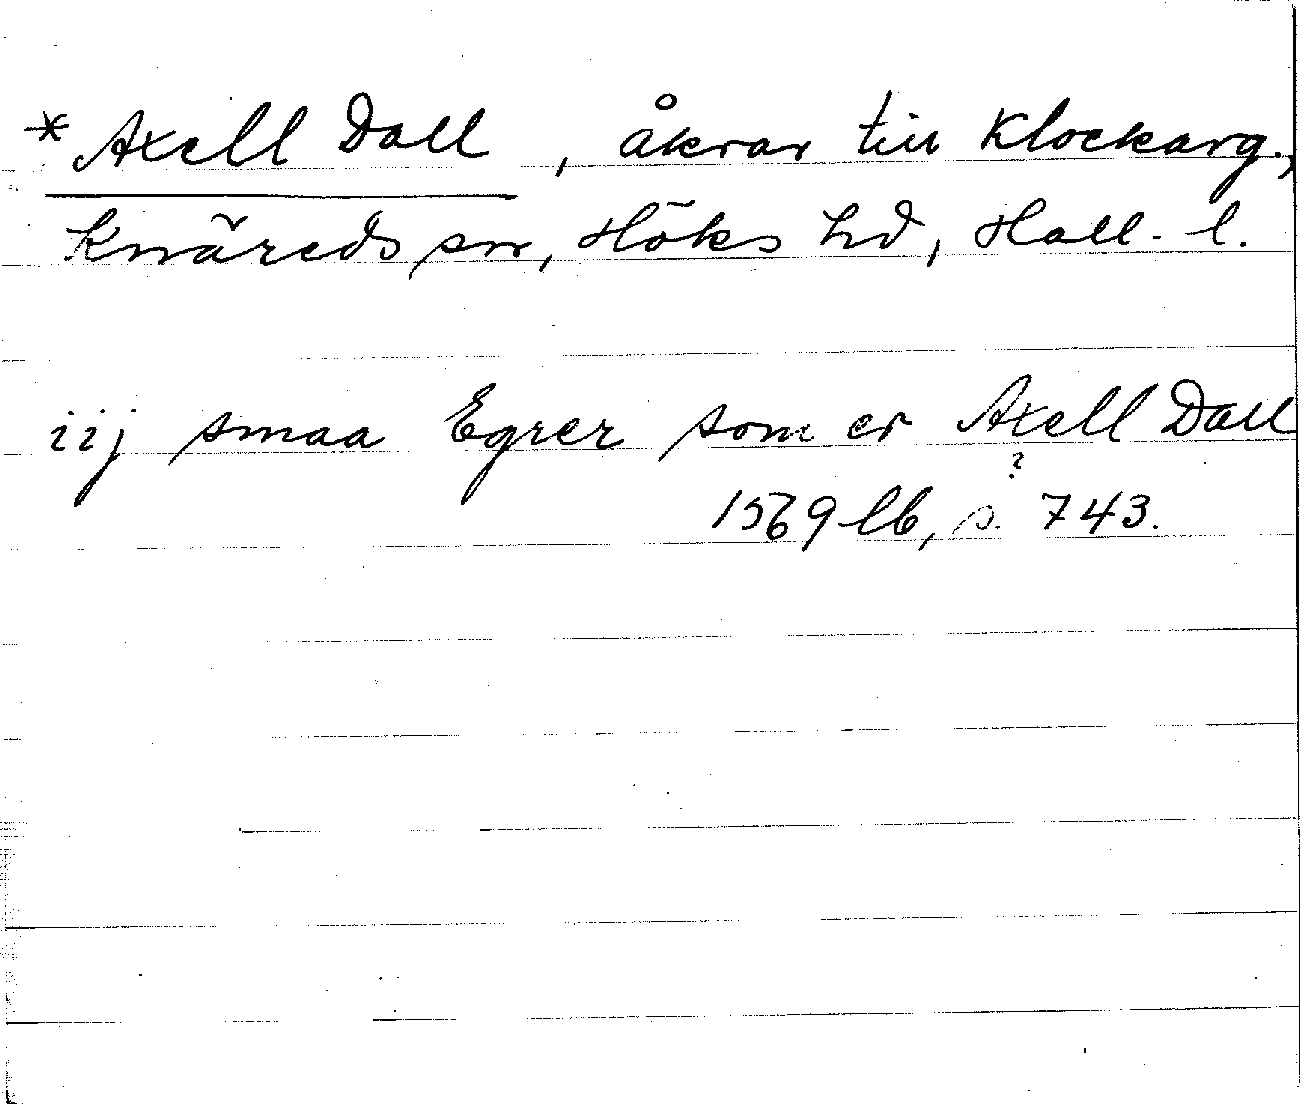 *Axell Dall, åkrar till Klockarg.,
Knäreds sn, Höks hd, Hall. l.
iij smaa Egrer som er Axell Dall
?
1569 lb, s. 743.